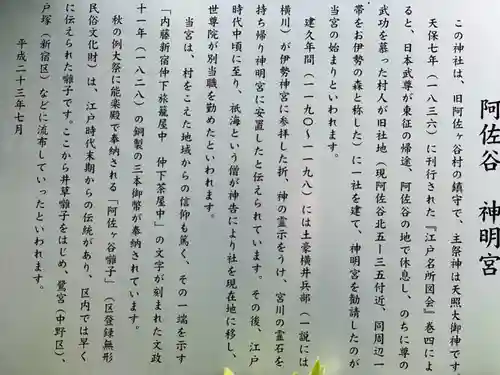 阿佐谷 神明宮
この神社は、旧阿佐ヶ谷村の鎮守で、主祭神は天照大御神です。
天保七年(一八三六)に刊行された『江戸名所図会』巻四によ
ると、日本武尊が東征の帰途、阿佐谷の地で休息し、のちに尊の
武功を慕った村人が旧社地(現阿佐谷北五ー三五付近、同周辺一
帯をお伊勢の森と称した)に一社を建て、神明宮を勧請したのが
当宮の始まりといわれます。
建久年間(一一九〇〜一一九八)には土豪横井兵部(一説には
横川)が伊勢神宮に参拝した折、神の霊示をうけ、宮川の霊石を
持ち帰り神明宮に安置したと伝えられています。その後、江戸
時代中頃に至り、祇海という僧が神告により社を現在地に移し、
世尊院が別当職を勤めたといわれます。
当宮は、村をこえた地域からの信仰も篤く、その一端を示す
「内藤新宿仲下旅籠屋中 仲下茶屋中」の文字が刻まれた文政
十一年(一八二八)の銅製の三本御幣が奉納されています。
秋の例大祭に能楽殿で奉納される「阿佐ヶ谷囃子」(区登録無形
民俗文化財)は、江戸時代末期からの伝統があり、区内では早く
に伝えられた囃子です。ここから井草囃子をはじめ、鷺宮(中野区)、
戸塚(新宿区)などに流布していったといわれます。
平成二十三年七月